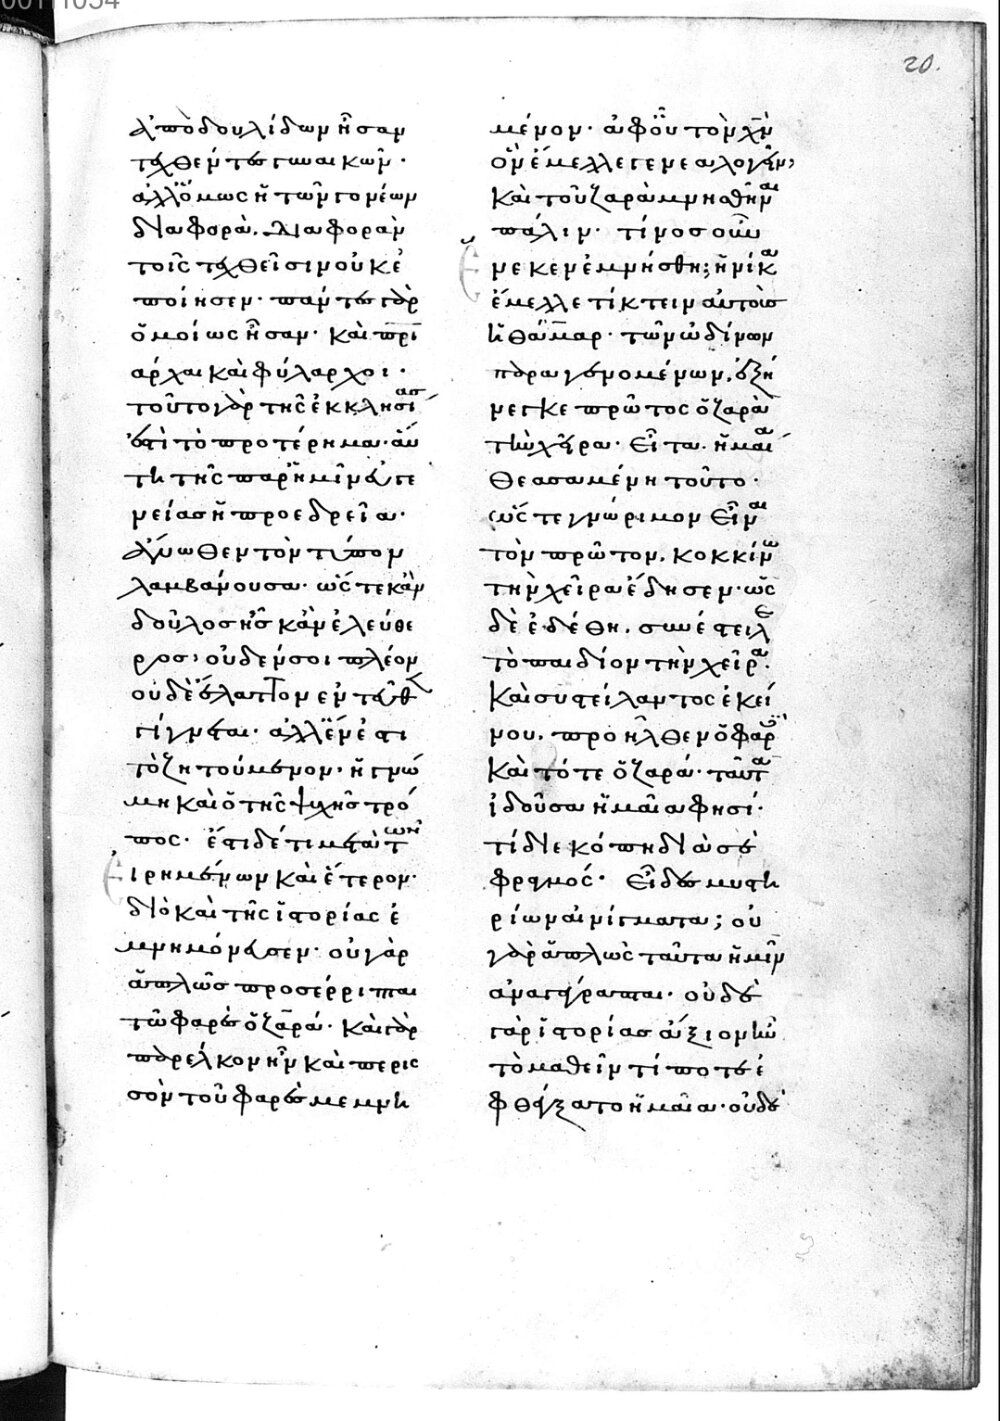 00111034
20.
ἀπὸ δουλίδων ἦσαν
ταχθέντες γυναικῶν·
ἀλλ' ὅμως ἡ τῶν γονέων
διαφορὰ, διαφορὰν
τοῖς ταχθεῖσιν οὐκ ἐ
ποίησεν· πάντες γὰρ
ὁμοίως ἦσαν· καὶ πρι
άρχαι καὶ φύλαρχοι·
τοῦτο γὰρ τῆς ἐκκλησίας
ἐστὶ τὸ προτέρημα· αὕ
τη τῆς παρ' ἡμῖν εὐγε
νείας ἡ προεδρεία·
ἄνωθεν τὸν τύπον
λαμβάνουσα· ὥστε κἂν
δοῦλος ἦς κἂν ἐλεύθε
ρος, οὐδέν σοι πλέον
οὐδὲ ἔλαττον ἐντεῦθ
γίγνεται· ἀλλ' ἕν ἐστι
τὸ ζητούμενον· ἡ γνώ
μη καὶ ὁ τῆς ψυχῆς τρό
πος· ἔστι δέ τι μετὰ τῶν
εἰρημένων καὶ ἕτερον·
διὸ καὶ τῆς ἱστορίας ἐ
μνημόνευσεν· οὐ γὰρ
ἁπλῶς προσέρριπται
τῶ φαρὲς ὁ ζαρά· καὶ γὰρ
παρέλκον ἦν καὶ περισ
σὸν τοῦ φαρὲς μεμνη
μένον· ἀφ' οὗ τὸν χν
ὃν ἔμελλε γενεαλογεῖν,
καὶ τοῦ ζαρὰ μνησθῆναι
πάλιν· τίνος οὖν
ἕνεκεν ἐμνήσθη; ἡνίκα
ἔμελλε τίκτειν αὐτοὺς
ἡ θάμαρ· τῶν ὠδίνων
παραγενομένων, ἐξή
νεγκε πρῶτος ὁ ζαρὰ
τὴν χεῖρα· εἶτα ἡ μαῖα
θεασαμένη τοῦτο·
ὥστε γνώριμον εἶναι
τὸν πρῶτον, κοκκίνω
τὴν χεῖρα ἔδησεν· ὡς
δὲ ἐδέθη, συνέστειλε
τὸ παιδίον τὴν χεῖρα·
καὶ συστείλαντος ἐκεί
νου, προῆλθεν ὁ φαρὲς
καὶ τότε ὁ ζαρά· ταῦτα
ἰδοῦσα ἡ μαῖα φησί·
τί διεκόπη διὰ σὲ
φραγμός· εἶδες μυστη
ρίων αἰνίγματα; οὐ
γὰρ ἁπλῶς ταῦτα ἡμῖν
ἀναγέγραπται· οὐδὲ
γὰρ ἱστορίας ἄξιον ἦν
τὸ μαθεῖν τί ποτε ἐ
φθέγξατο ἡ μαῖα· οὐδὲ